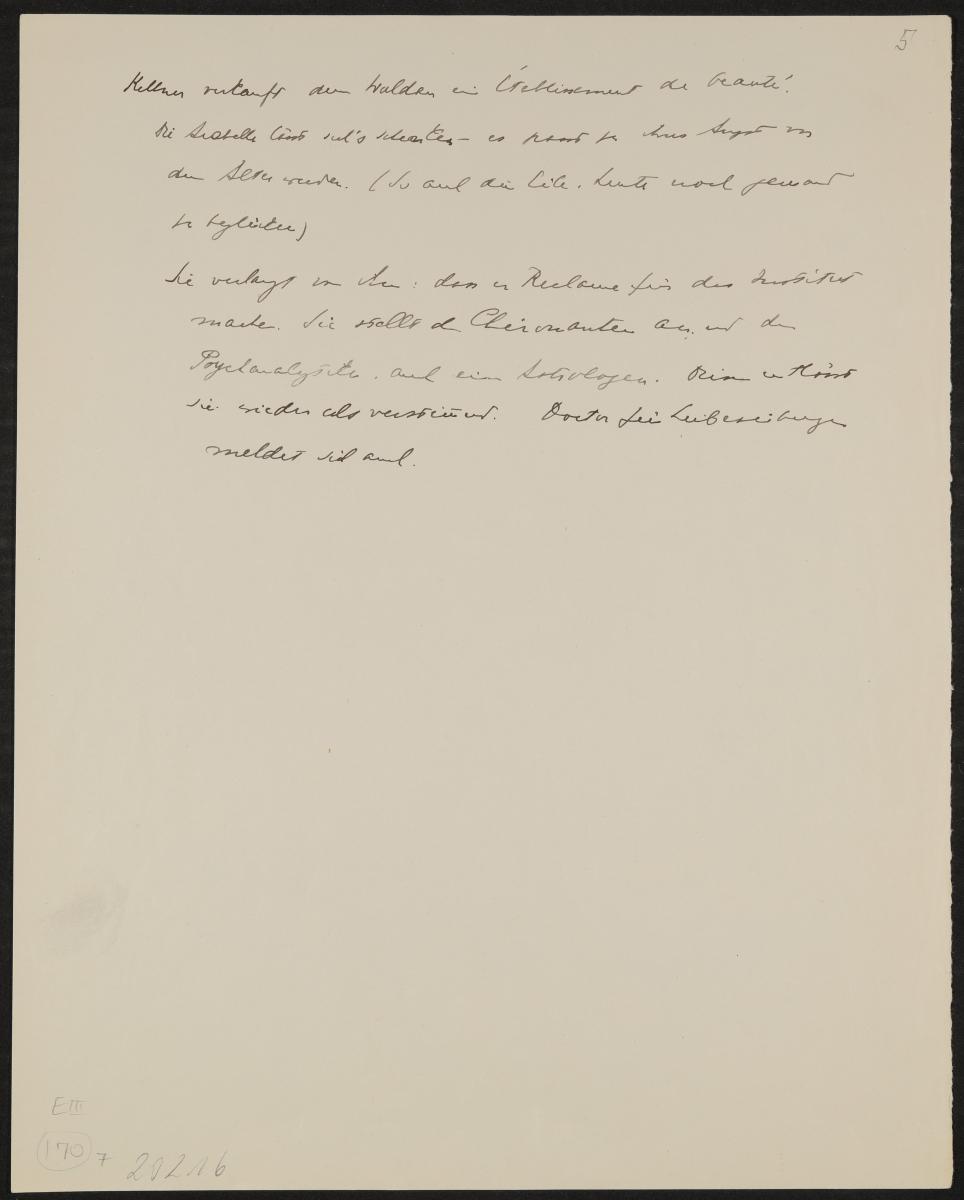 5
Kellner verkauft dem Walden ein Établissement de beauté.
Die Isabelle lässt sich's schenken – es passt zu ihrer Angst vor
dem Älterwerden. (So auch die Lili. Leute noch jemand
zu beglücken)
Sie verlangt von ihm: dass er Reclame für das Institut
mache. Sie stellt den Chiromanten an, und den
Psychanalysten. auch einen Astrologen.
sie wieder als verstimmt. Doctor für Leibesübungen
meldet sich auch.
E III
170 7 20216